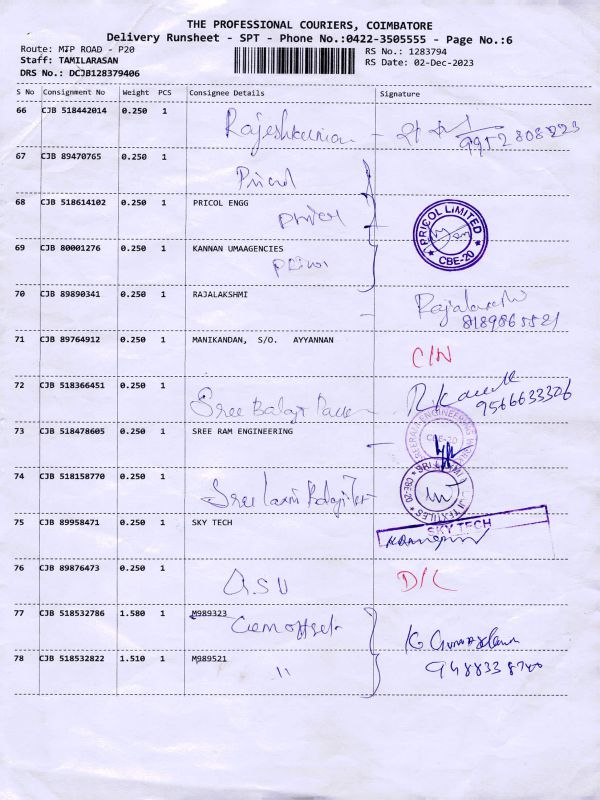 THE PROFESSIONAL COURIERS, COIMBATORE
Delivery Runsheet - SPT - Phone No.:0422-3505555 - Page No.:6
Route: MTP ROAD - P20
RS No.: 1283794
Staff: TAMILARASAN
RS Date: 02-Dec-2023
DRS No.: DCJB128379406
S No Consignment No Weight PCS Consignee Details Signature
66 CJB 518442014 0.250 1
Rajeshkumar
67 CJB 89470765 0.250 1
Pricol
68 CJB 518614102 0.250 1 PRICOL ENGG
Pricol
PRICOL LIMITED
CBE-20
69 CJB 80001276 0.250 1 KANNAN UMAAGENCIES
Pricol
70 CJB 89890341 0.250 1 RAJALAKSHMI
Rajalakshmi
71 CJB 89764912 0.250 1 MANIKANDAN, S/O. AYYANNAN
C/N
72 CJB 518366451 0.250 1
Sree Balaji
9566633306
73 CJB 518478605 0.250 1 SREE RAM ENGINEERING
CBE-20
74 CJB 518158770 0.250 1
Sree Laxmi Balaji Tex
75 CJB 89958471 0.250 1 SKY TECH
SKY TECH
76 CJB 89876473 0.250 1
D/L
77 CJB 518532786 1.580 1 M989323
Gem offset
78 CJB 518532822 1.510 1 M989521
"